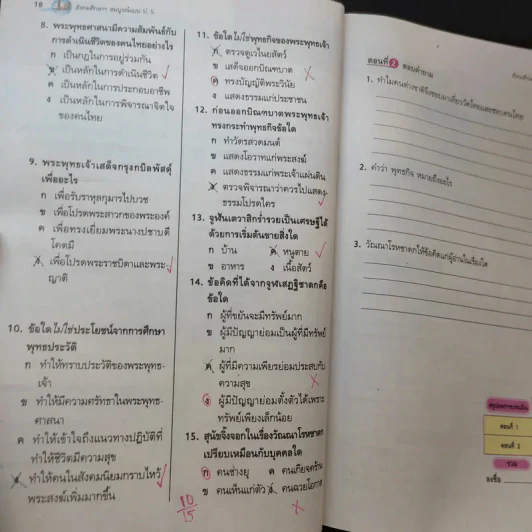 18 สังคมศึกษาฯ สมบูรณ์แบบ ป. 5
8. พระพุทธศาสนามีความสัมพันธ์กับ
การดำเนินชีวิตของคนไทยอย่างไร
ก เป็นกฎในการอยู่ร่วมกัน
ข เป็นหลักในการดำเนินชีวิต
ค เป็นหลักในการประกอบอาชีพ
ง เป็นหลักในการพิจารณาจิตใจ
ของคนไทย
9. พระพุทธเจ้าเสด็จกรุงกบิลพัสดุ์
เพื่ออะไร
ก เพื่อรับราหุลกุมารไปบวช
ข เพื่อโปรดพระสาวกขององค์
ค เพื่อทรงเยี่ยมพระนางปชาบดี
โคตมี
ง เพื่อโปรดพระราชบิดาและพระ-
ญาติ
10. ข้อใดไม่ใช่ประโยชน์จากการศึกษา
พุทธประวัติ
ก ทำให้ทราบประวัติของพระพุทธ-
เจ้า
ข ทำให้มีความศรัทธาในพระพุทธ-
ศาสนา
ค ทำให้เข้าใจถึงแนวทางปฏิบัติที่
ทำให้ชีวิตมีความสุข
ง ทำให้คนในสังคมนิยมกราบไหว้
พระสงฆ์เพิ่มมากขึ้น
11. ข้อใดไม่ใช่พุทธกิจของพระพุทธเจ้า
ก ตรวจดูเวไนยสัตว์
ข เสด็จออกบิณฑบาต
ค ทรงบัญญัติพระวินัย
ง แสดงธรรมแก่ประชาชน
12. ก่อนออกบิณฑบาตพระพุทธเจ้า
ทรงกระทำพุทธกิจข้อใด
ก ทำวัตรสวดมนต์
ข แสดงโอวาทแก่พระสงฆ์
ค แสดงธรรมแก่พระเจ้าแผ่นดิน
ง ตรวจพิจารณาว่าควรไปแสดง-
ธรรมโปรดใคร
13. จูฬันเตวาสิกร่ำรวยเป็นเศรษฐีได้
ด้วยการเริ่มต้นขายสิ่งใด
ก บ้าน ค หนูตาย
ข อาหาร ง เนื้อสัตว์
14. ข้อคิดที่ได้จากจูฬเสฏฐิชาดกคือ
ข้อใด
ก ผู้ที่ขยันจะมีทรัพย์มาก
ข ผู้มีปัญญาย่อมเป็นผู้ที่มีทรัพย์
มาก
ค ผู้ที่มีความเพียรย่อมประสบกับ
ความสุข
ง ผู้มีปัญญาย่อมตั้งตัวได้เพราะ
ทรัพย์เพียงเล็กน้อย
15. สุนัขจิ้งจอกในเรื่องวัณณาโรหชาดก
เปรียบเหมือนกับบุคคลใด
ก คนช่างยุ ค คนเกียจคร้าน
ข คนเห็นแก่ตัว ง คนฉวยโอกาส
10
15
ตอนที่ 2 ตอบคำถาม
1. ทำไมคนต่างชาติจึงชอบมาเที่ยววัดไทยและชอบคนไทย
2. คำว่า พุทธกิจ หมายถึงอะไร
3. วัณณาโรหชาดกให้ข้อคิดแก่ผู้อ่านในเรื่องใด
ตอนที่ 1
ตอนที่ 2
รวม
ลงชื่อ